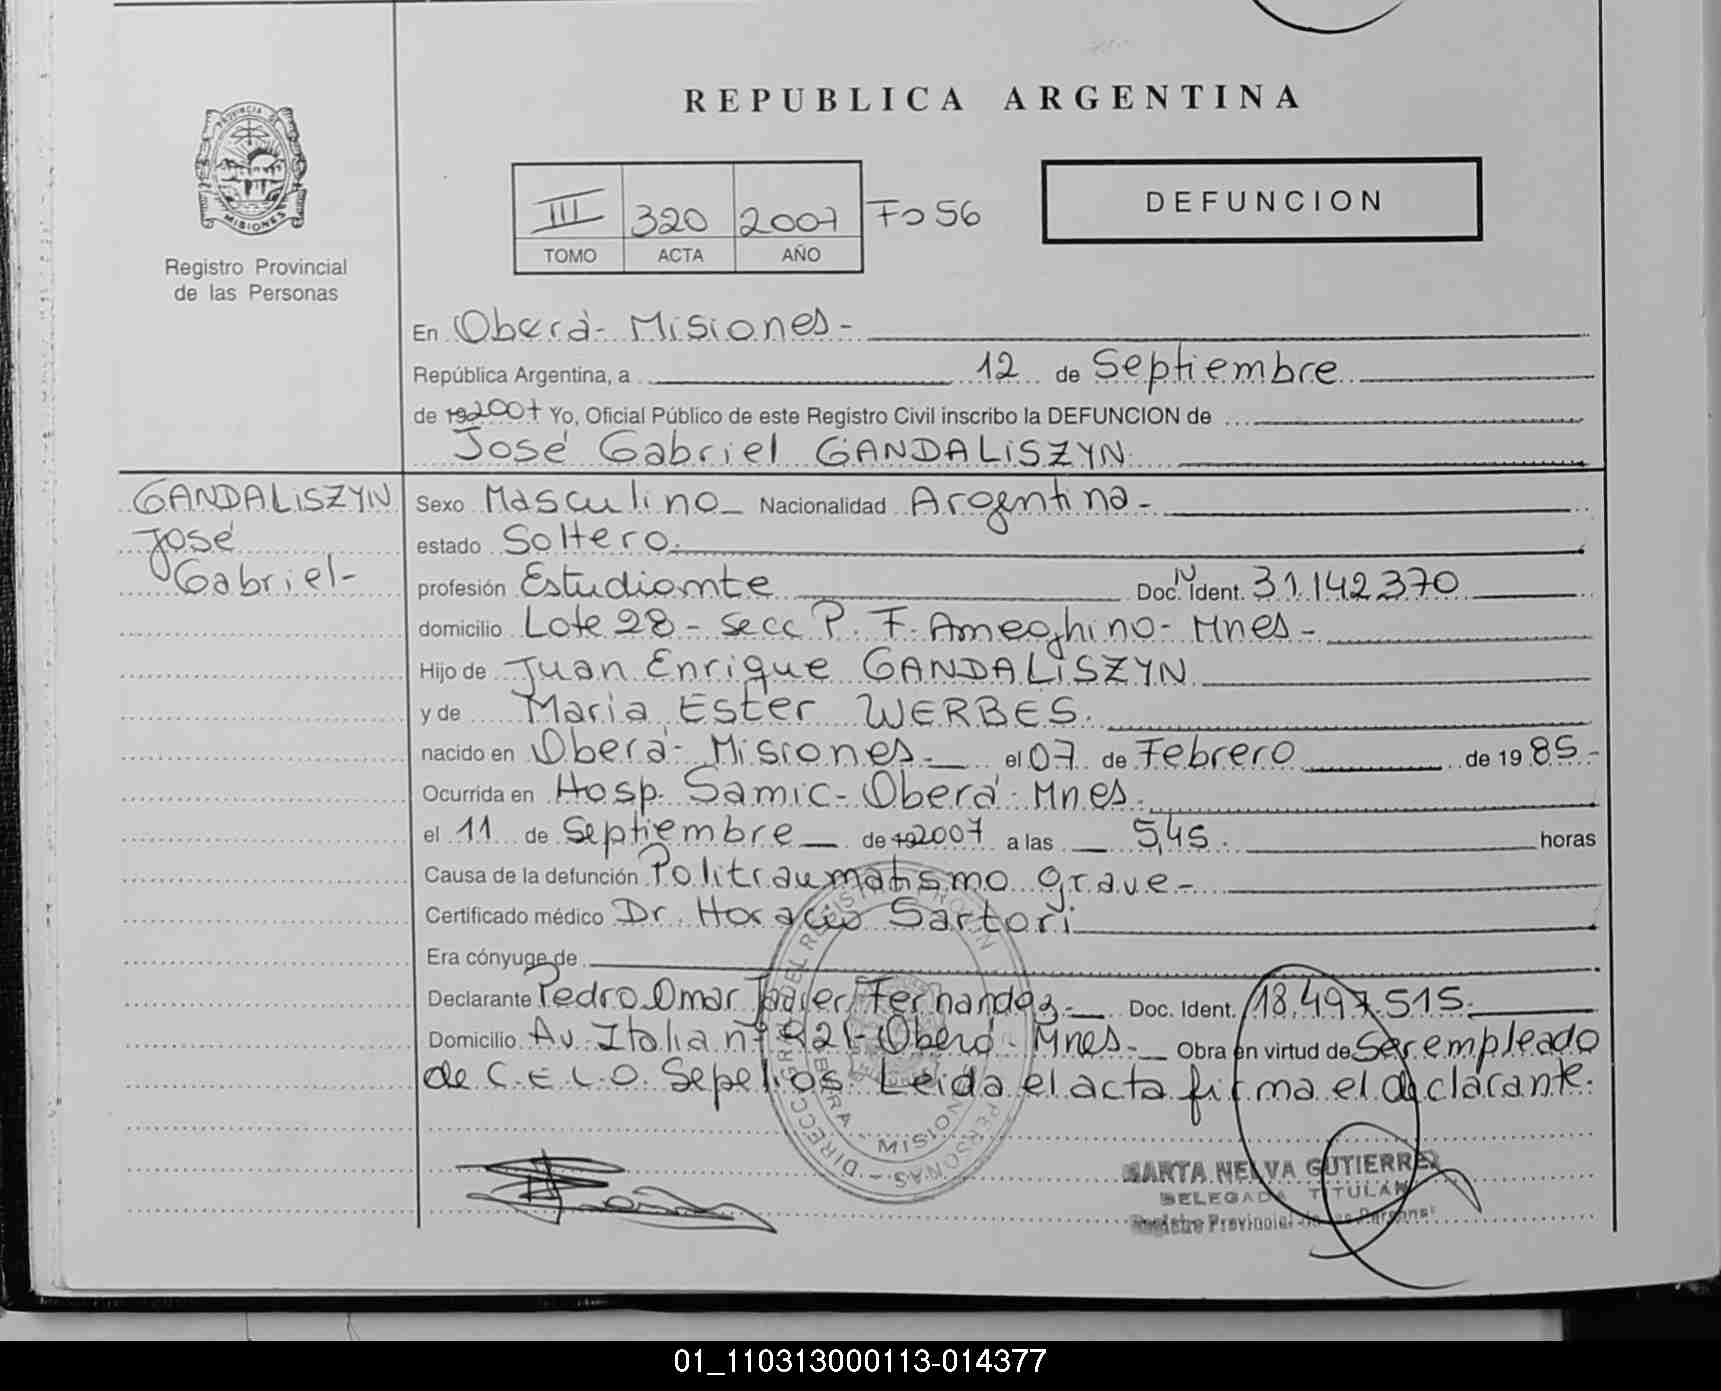 REPUBLICA ARGENTINA
PROVINCIA DE
MISIONES
Registro Provincial
de las Personas
III 320 2007 Fo 56
TOMO ACTA AÑO
DEFUNCION
En Oberá - Misiones -
República Argentina, a 12 de Septiembre
de 19 2007 Yo, Oficial Público de este Registro Civil inscribo la DEFUNCION de
José Gabriel GANDALISZYN
GANDALISZYN
José
Gabriel -
Sexo Masculino Nacionalidad Argentina -
estado Soltero.
profesión Estudiante Doc. N Ident. 31.142.370
domicilio Lote 28 - secc P. F. Ameghino - Mnes -
Hijo de Juan Enrique GANDALISZYN
y de Maria Ester WERBES.
nacido en Oberá - Misiones - el 07 de Febrero de 19 85 -
Ocurrida en Hosp. Samic - Oberá - Mnes.
el 11 de Septiembre de 19 2007 a las 5,45. horas
Causa de la defunción Politraumatismo grave -
Certificado médico Dr. Horacio Sartori
Era cónyuge de
Declarante Pedro Omar Javier Fernandez Doc. Ident. 18.497.515.
Domicilio Av. Italia nº 921 - Oberá - Mnes - Obra en virtud de Ser empleado
de C.E.L.O. Sepelios. Leida el acta firma el declarante.
MISIONES
MARTA NELVA GUTIERREZ
DELEGADA TITULAR
Registro Provincial de las Personas
01_110313000113-014377